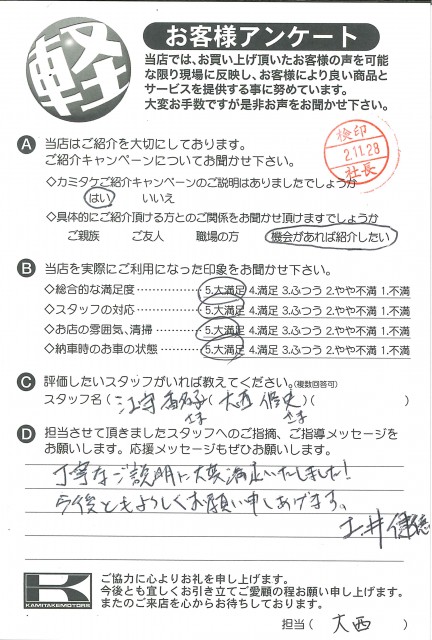 軽
お客様アンケート
当店では、お買い上げ頂いたお客様の声を可能
な限り現場に反映し、お客様により良い商品と
サービスを提供する事に努めています。
大変お手数ですが是非お声をお聞かせ下さい。
検印
2.11.28
社長
A 当店はご紹介を大切にしております。
ご紹介キャンペーンについてお聞かせ下さい。
◇カミタケご紹介キャンペーンのご説明はありましたでしょうか
はい いいえ
◇具体的にご紹介頂ける方とのご関係をお聞かせ頂けますでしょうか
ご親族 ご友人 職場の方 機会があれば紹介したい
B 当店を実際にご利用になった印象をお聞かせ下さい。
◇総合的な満足度 ……………… 5.大満足 4.満足 3.ふつう 2.やや不満 1.不満
◇スタッフの対応 ……………… 5.大満足 4.満足 3.ふつう 2.やや不満 1.不満
◇お店の雰囲気、清掃 ………… 5.大満足 4.満足 3.ふつう 2.やや不満 1.不満
◇納車時のお車の状態 ………… 5.大満足 4.満足 3.ふつう 2.やや不満 1.不満
C 評価したいスタッフがいれば教えてください。(複数回答可)
スタッフ名 ( 江守 さま )( 大西 さま )( )
D 担当させて頂きましたスタッフへのご指摘、ご指導メッセージを
お願いします。応援メッセージもぜひお願いします。
丁寧なご説明に大変満足いたしました!
今後ともよろしくお願い申しあげます。
土井
K
KAMITAKEMOTORS
ご協力に心よりお礼を申し上げます。
今後とも宜しくお引き立てご愛顧の程お願い申し上げます。
またのご来店を心からお待ちしております。
担当 ( 大西 )